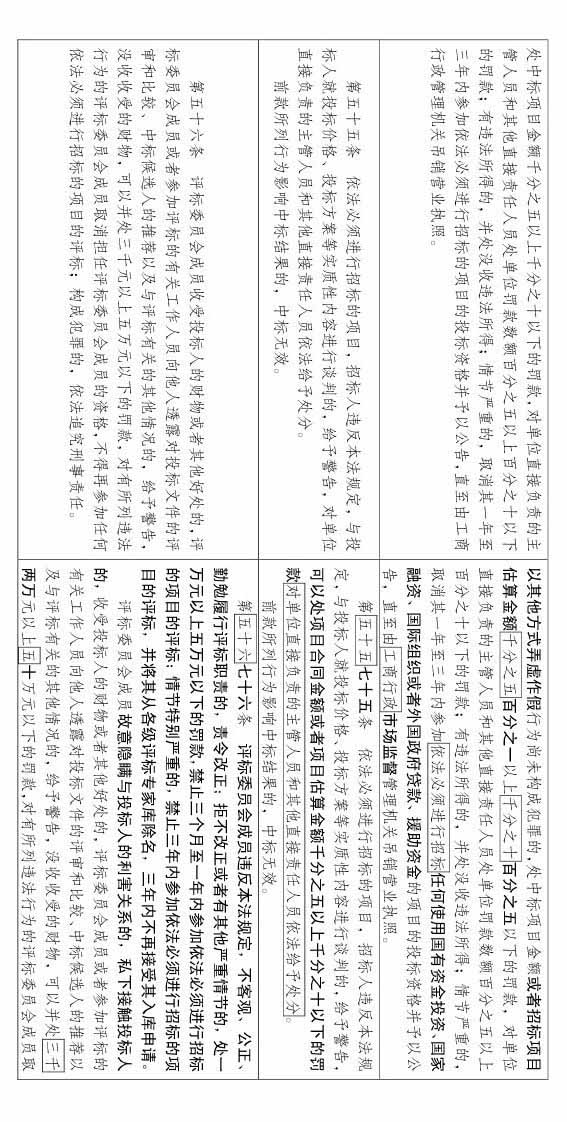 处中标项目金额千分之五以上千分之十以下的罚款，对单位直接负责的主
管人员和其他直接责任人员处单位罚款数额百分之五以上百分之十以下
的罚款；有违法所得的，并处没收违法所得；情节严重的，取消其一年至
三年内参加依法必须进行招标的项目的投标资格并予以公告，直至由工商
行政管理机关吊销营业执照。
以其他方式弄虚作假行为尚未构成犯罪的，处中标项目金额或者招标项目
估算金额千分之五百分之一以上千分之十百分之五以下的罚款，对单位
直接负责的主管人员和其他直接责任人员处单位罚款数额百分之五以上
百分之十以下的罚款；有违法所得的，并处没收违法所得；情节严重的，
取消其一年至三年内参加依法必须进行招标任何使用国有资金投资、国家
融资、国际组织或者外国政府贷款、援助资金的项目的投标资格并予以公
告，直至由工商行政市场监督管理机关吊销营业执照。
第五十五条　依法必须进行招标的项目，招标人违反本法规定，与投
标人就投标价格、投标方案等实质性内容进行谈判的，给予警告，对单位
直接负责的主管人员和其他直接责任人员依法给予处分。
前款所列行为影响中标结果的，中标无效。
第五十五七十五条　依法必须进行招标的项目，招标人违反本法规
定，与投标人就投标价格、投标方案等实质性内容进行谈判的，给予警告，
可以处项目合同金额或者项目估算金额千分之五以上千分之十以下的罚
款对单位直接负责的主管人员和其他直接责任人员依法给予处分。
前款所列行为影响中标结果的，中标无效。
第五十六条　评标委员会成员收受投标人的财物或者其他好处的，评
标委员会成员或者参加评标的有关工作人员向他人透露对投标文件的评
审和比较、中标候选人的推荐以及与评标有关的其他情况的，给予警告，
没收收受的财物，可以并处三千元以上五万元以下的罚款，对有所列违法
行为的评标委员会成员取消担任评标委员会成员的资格，不得再参加任何
依法必须进行招标的项目的评标；构成犯罪的，依法追究刑事责任。
第五十六七十六条　评标委员会成员违反本法规定，不客观、公正、
勤勉履行评标职责的，责令改正；拒不改正或者有其他严重情节的，处一
万元以上五万元以下的罚款，禁止三个月至一年内参加依法必须进行招标
的项目的评标；情节特别严重的，禁止三年内参加依法必须进行招标的项
目的评标，并将其从各级评标专家库除名，三年内不再接受其入库申请。
评标委员会成员故意隐瞒与投标人的利害关系的，私下接触投标人
的，收受投标人的财物或者其他好处的，评标委员会成员或者参加评标的
有关工作人员向他人透露对投标文件的评审和比较、中标候选人的推荐以
及与评标有关的其他情况的，给予警告，没收收受的财物，可以并处三千
两万元以上五十万元以下的罚款，对有所列违法行为的评标委员会成员取